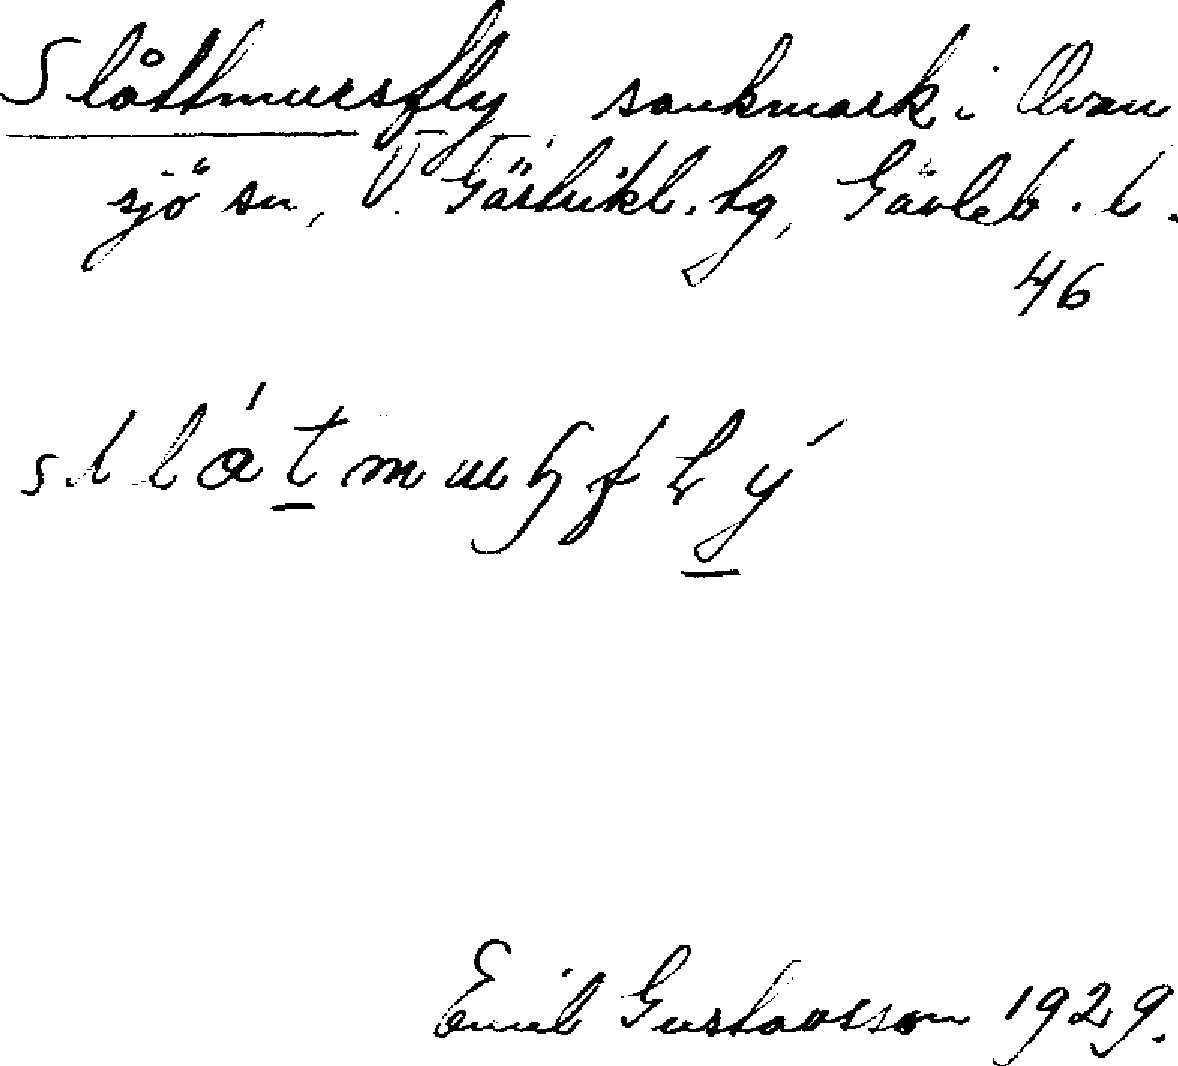 Slåttmursfly sankmark i Ovan
sjö sn, V. Gästrikl. hg, Gävleb. l.
46
Emil Gustavsson 1929.